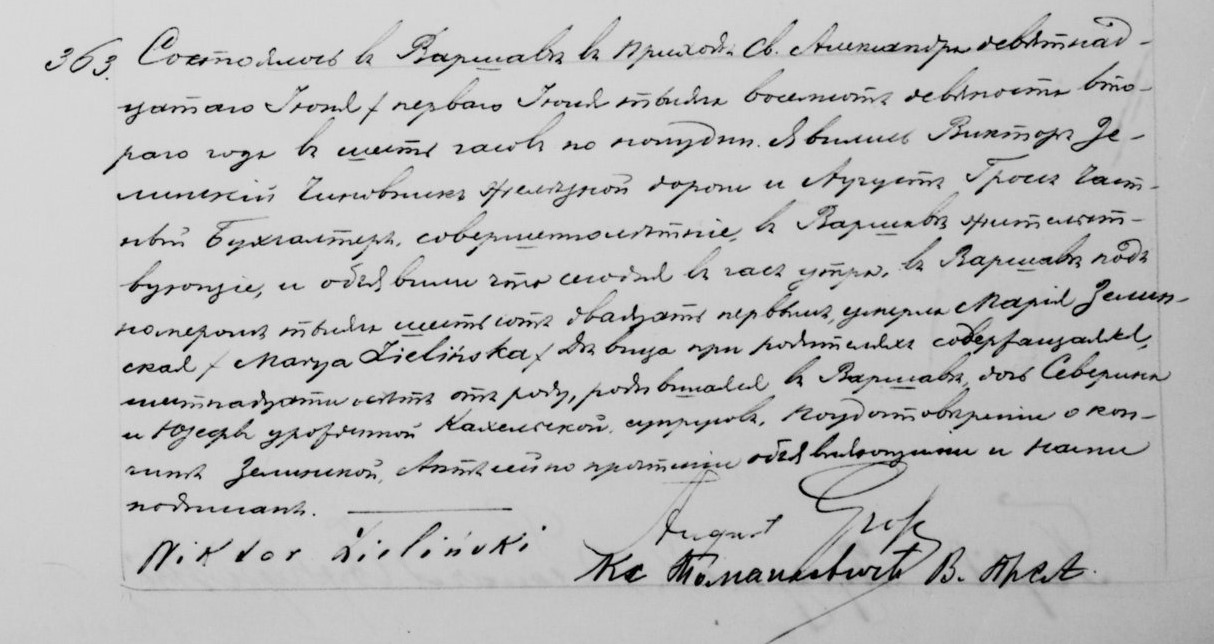 363. Состоялось въ Варшавѣ въ приходѣ Св. Александра девятнад-
цатаго Іюня / перваго Іюля тысяча восемьсотъ девяносто вто-
раго года въ шесть часовъ по полудни. Явились Викторъ Зе-
линскій Чиновникъ желѣзной дороги и Августъ Гросъ Част-
ный Бухгалтеръ, совершеннолѣтніе, въ Варшавѣ жительст-
вующіе, и объявили что сегодня въ часъ утра, въ Варшавѣ подъ
номеромъ тысяча шестьсотъ двадцать первымъ, умерла Марія Зелин-
ская / Marya Zielińska / дѣвица при родителяхъ
шестнадцати лѣтъ отъ роду, родившаяся въ Варшавѣ, дочь Северина
и Юзефы урожденной супруговъ. По удостовѣреніи о кон-
чинѣ Зелинской, Актъ сей по прочтеніи объявляющими и Нами
подписанъ.
Wiktor Zieliński
August Gross
Кс В.